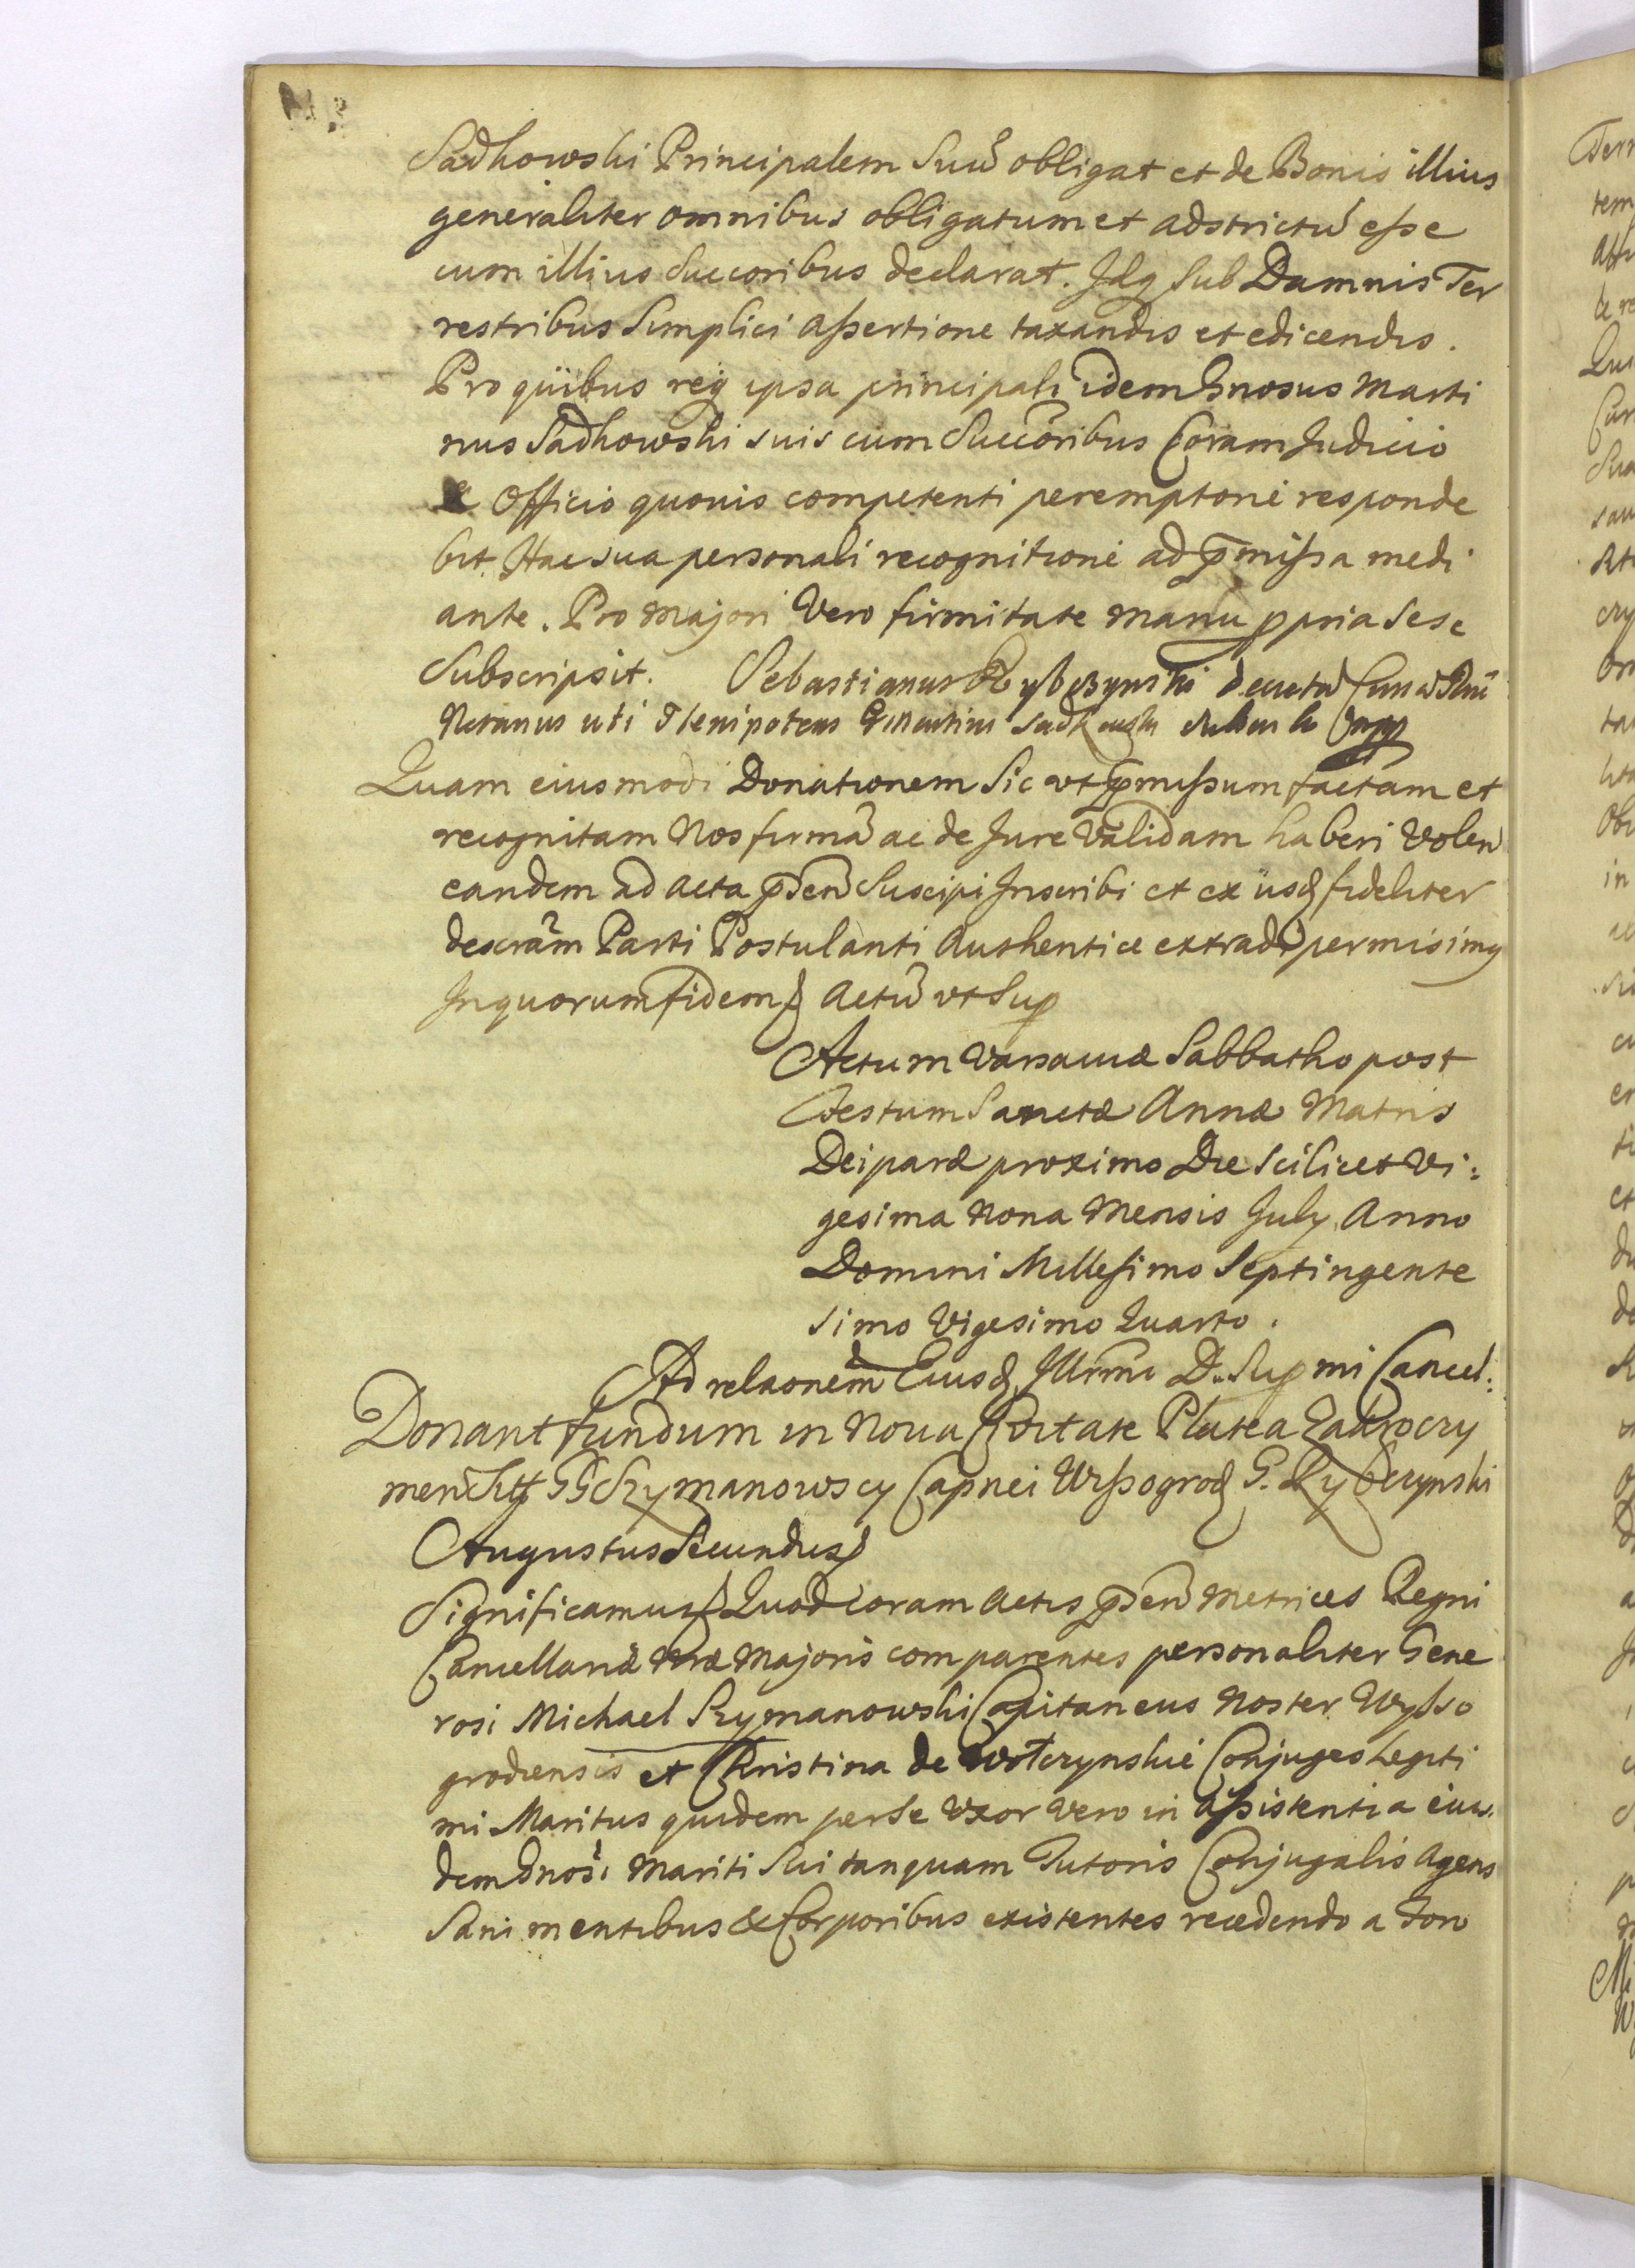 Sadkowski Principalem Suũ obligat et de Bonis illius
generaliter omnibus obligatum et adstrictũ esse
cum illius Succoribus declarat. Idq Sub Damnis Ter
restribus Simplici Assertione taxandis et edicendis.
Pro quibus req ipsa principali idem Gnosus Marti
nus Sadkowski suis cum Succoribus Coram Judicio
& Officio quovis competenti peremptorie responde
bit. Hac sua personali recognitione ad p̃missa medi
ante. Pro Majori Vero firmitate manu ppria Sese
Subscripsit. Sebastianus Rybczynski
Notarius uti Plenipotens G Martini Sadkowski
Quam eiusmodi Donationem Sic ut p̃missum factam et
recognitam Nos firmã ac de Jure Validam haberi Volen̄
eandem ad Acta p̃sen̄ Suscipi Inscribi et ex iisq fideliter
descrãm Parti Postulanti Authentice extradi permisimq
In quorum fidem Actũ ut Sup
Actum Varsaviæ Sabbatho post
Festum Sanctæ Annæ Matris
Deiparæ proximo Die Scilicet Vi:
gesima Nona Mensis July Anno
Domini Millesimo Septingente
simo Vigesimo Quarto.
Ad relaonem̃ Eiusd Illrmi D. Supmi Cancel:
Donant fundum in Nova Civitate Platea Zakroczy
men GG Szymanowscy Capnei Wyssogrod G. Rybczynski
Augustus Secundus
Significamus Quod coram Actis p̃sen̄ Metrices Regni
Cancellariæ Nræ Majoris comparentes personaliter Gene
rosi Michael Szymanowski Capitaneus Noster Wysso
grodiensis et Christina de Conjuges Legiti
mi Maritus quidem per Se Uxor Vero in Assistentia eius
dem Gnosi Mariti Sui tanquam Tutoris Conjugalis Agens
Sani mentibus & Corporibus existentes recedendo a Foro